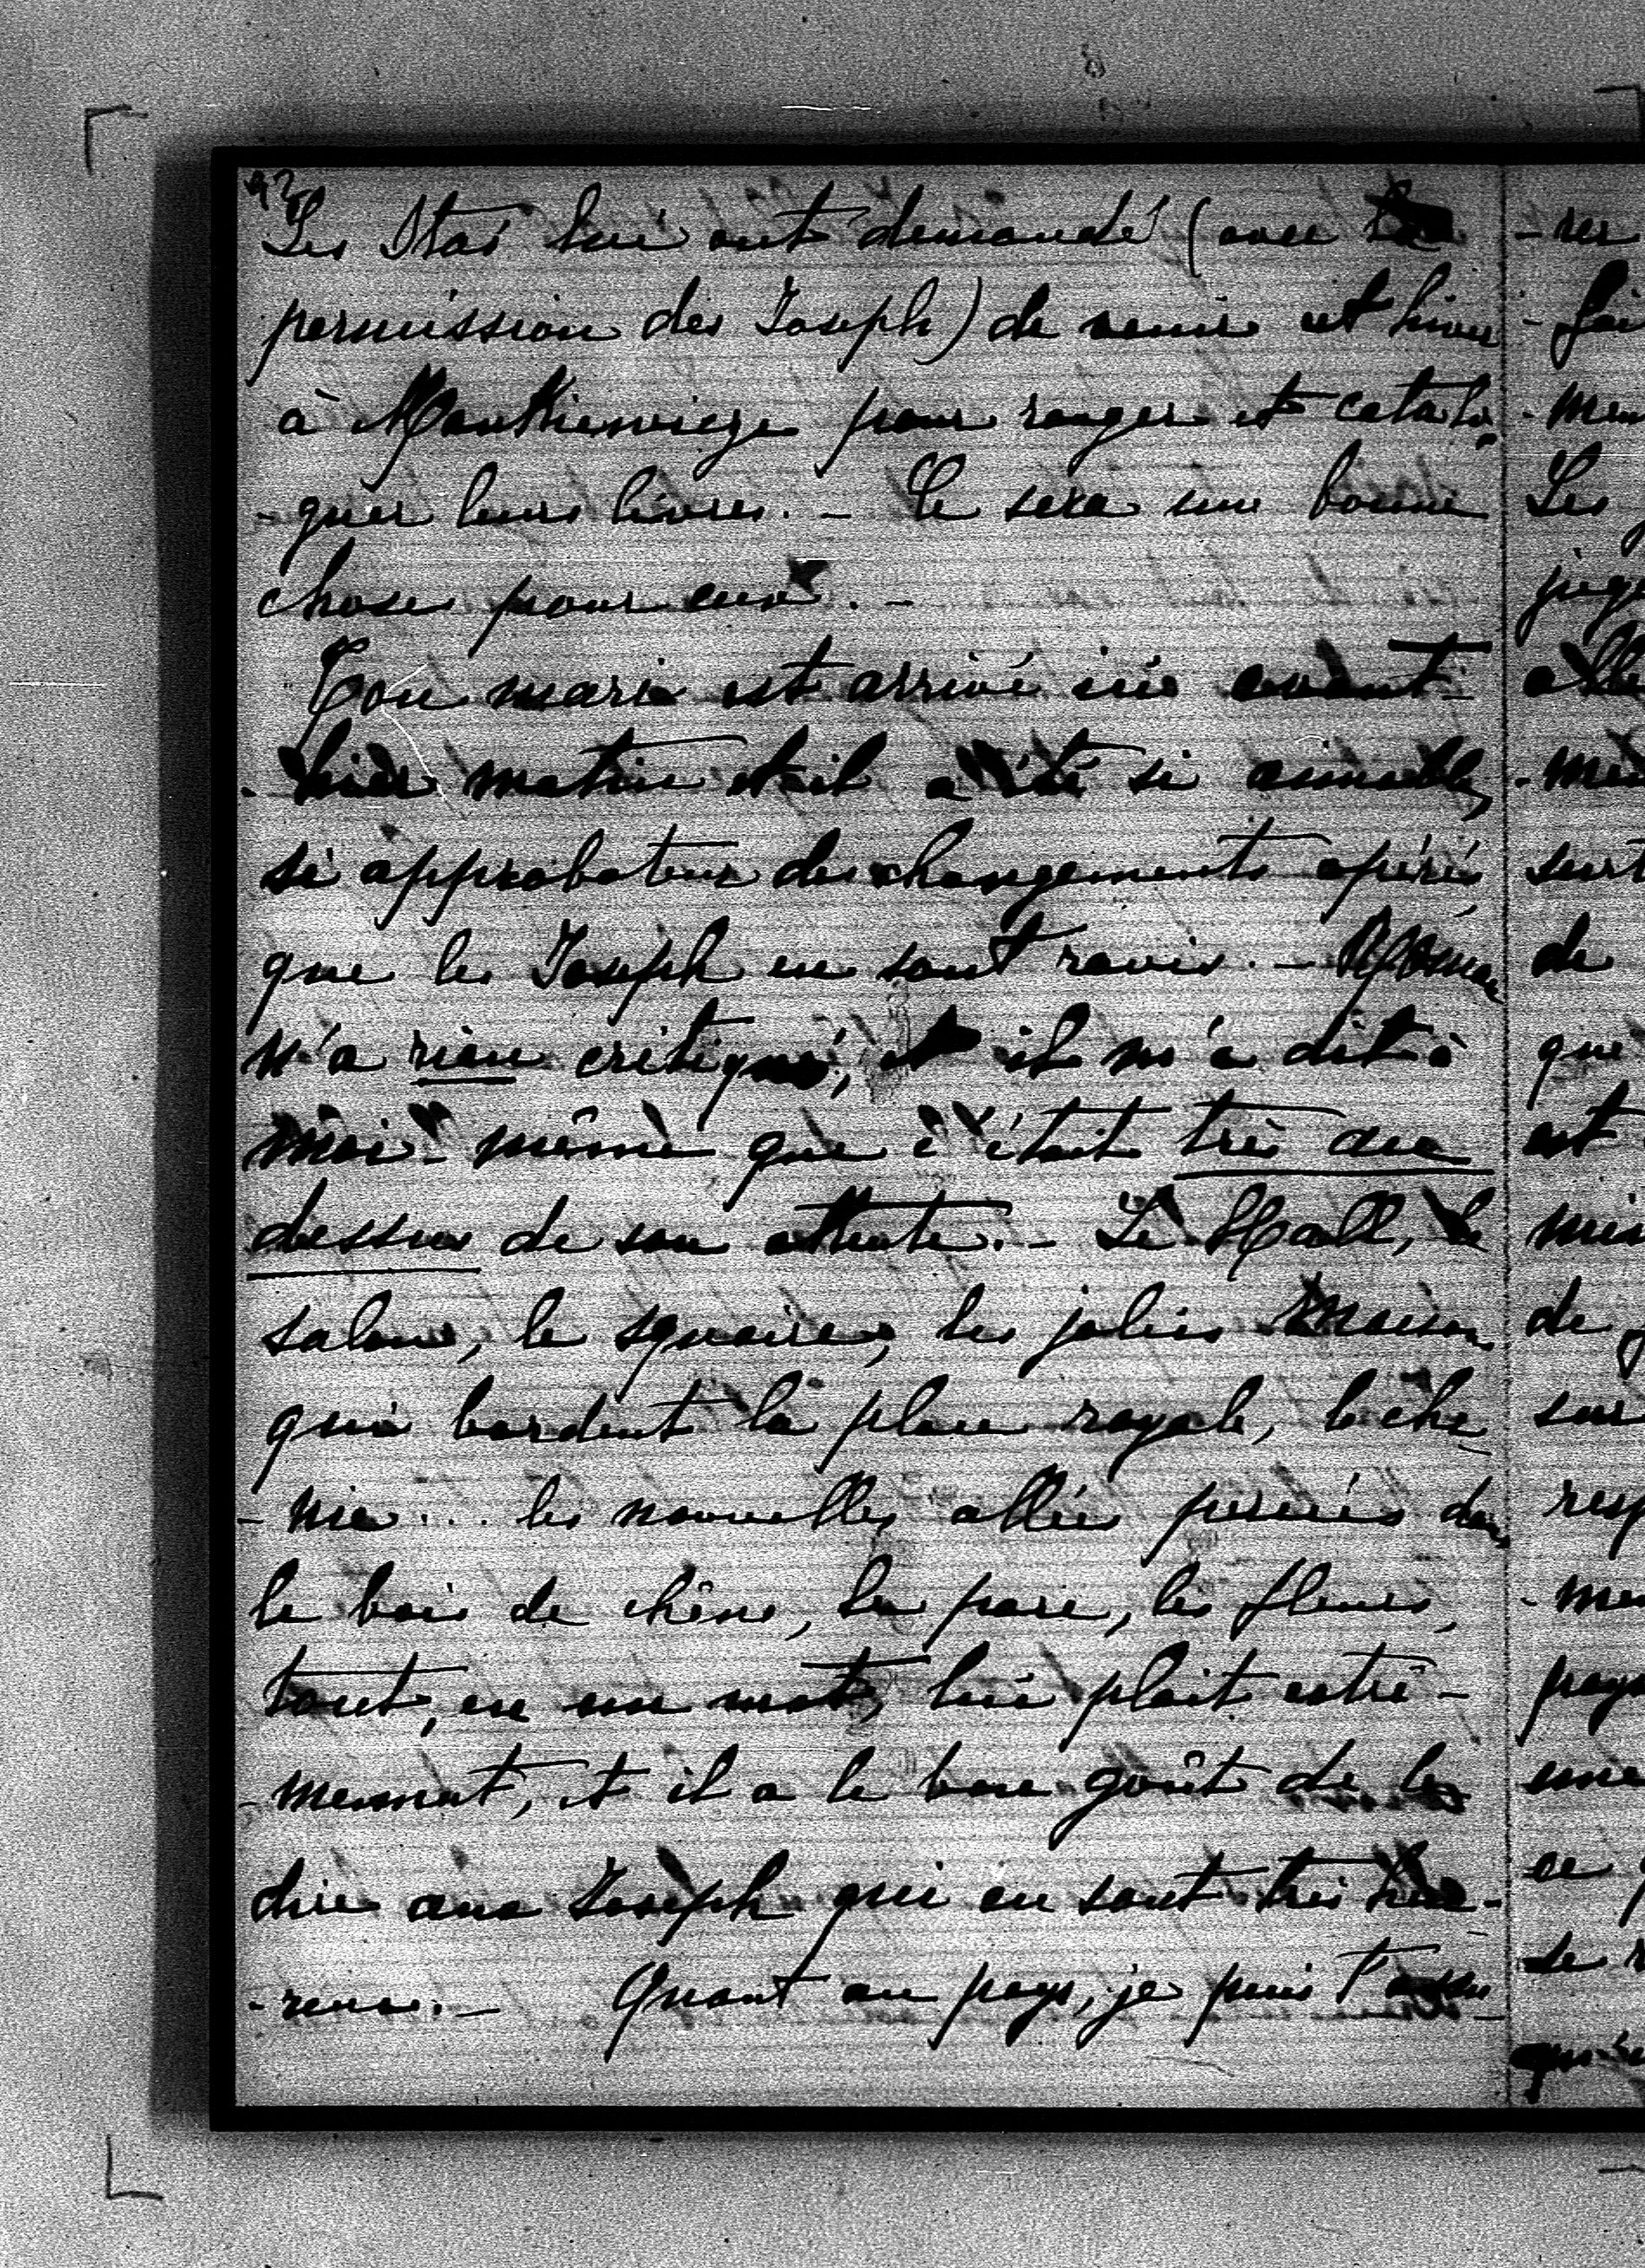 92
Les Stas lui ont demandé (avec la
permission des Joseph) de venir cet hiver
à Mankiewicze pour ranger et catalo
-guer leurs livres. - Ce sera une bonne
chose pour eux. -
Ton mari est arrivé ici avant-
-hier matin et il a été si aimable,
si approbateur des changements opérés
que les Joseph en sont ravis. -
n'a rien critiqué, et il m'a dit à
moi-même que c'était très au
dessus de son attente. - Le Hall, le
salon, le square, les jolies maisons
qui bordent la place royale, le che
-nie... les nouvelles allées percées dans
le bois de chêne, le parc, les fleurs,
tout, en un mot, lui plait extrê-
-mement, et il a le bon goût de le
dire aux Joseph qui en sont très heu-
-reux. - Quant au pays, je puis t'assu-
-rer
-
-men
Les
alle
-men
surt
de
que
est
min
de
sur
resp
-me
pays
une
ce
de